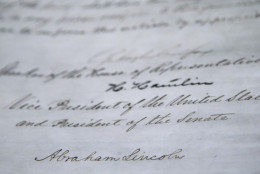 Speaker of the House of Representatives
H. Hamlin
Vice President of the United Stat
and President of the Senate
Abraham Lincoln